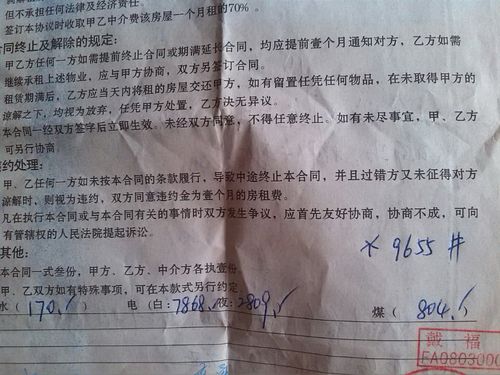 但不承担任何法律及经济责任。
签订本协议时收取甲乙中介费该房屋一个月租的70%。
合同终止及解除的规定:
甲乙方任何一方如需提前终止合同或期满延长合同,均应提前壹个月通知对方,乙方如需
继续承租上述物业,应与甲方协商,双方另签订合同。
租赁期满后,乙方应当天内将租的房屋交还甲方,如有留置任凭任何物品,在未取得甲方的
谅解之下,均视为放弃,任凭甲方处置,乙方决无异议。
本合同一经双方签字后立即生效。未经双方同意,不得任意终止。如有未尽事宜,甲、乙方
可另行协商。
违约处理:
甲、乙任何一方如未按本合同的条款履行,导致中途终止本合同,并且过错方又未征得对方
谅解时,则视为违约,双方同意违约金为壹个月的房租费。
凡在执行本合同或与本合同有关的事情时双方发生争议,应首先友好协商,协商不成,可向
有管辖权的人民法院提起诉讼。
* 9655 #
其他:
本合同一式叁份,甲方、乙方、中介方各执壹份。
甲、乙双方如有特殊事项,可在本款式另行约定。
水(170.✓) 电(白:7868.✓夜:2809.✓ 煤(804.✓)
戴福
FA0803000